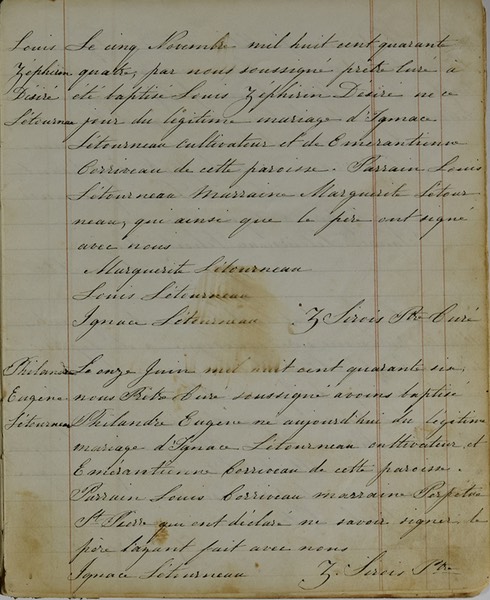 Louis Le cinq Novembre mil huit cent quarante
Zéphirin quatre, par nous soussigné prêtre curé à
Désiré été baptisé Louis Zéphirin Désiré né ce
Létourneau jour du légitime mariage d'Ignace
Létourneau cultivateur et de Emérantienne
Corriveau de cette paroisse. Parrain Louis
Létourneau Marraine Marguerite Létour
neau, qui ainsi que le père ont signé
avec nous
Marguerite Létourneau
Louis Létourneau
Ignace Létourneau Z Sirois Ptre Curé
Philandre Le onze Juin mil huit cent quarante six
Eugene nous Prêtre Curé soussigné avons baptisé
Létourneau Philandre Eugene né aujourd'hui du légitime
mariage d'Ignace Létourneau cultivateur et
Emérantienne Corriveau de cette paroisse.
Parrain Louis Corriveau marraine Perpétue
St. Pierre qui ont déclaré ne savoir signer le
père l'ayant fait avec nous
Ignace Létourneau Z. Sirois Ptre